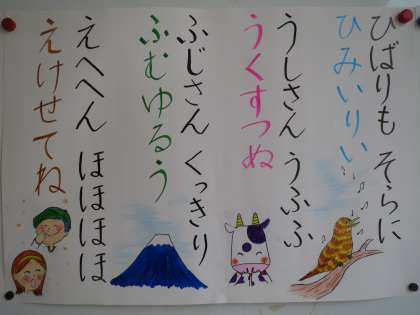 ひばりも そらに
ひみいりい
うしさん うふふ
うくすつぬ
ふじさん くっきり
ふむゆるう
えへへん ほほほほ
えけせてね